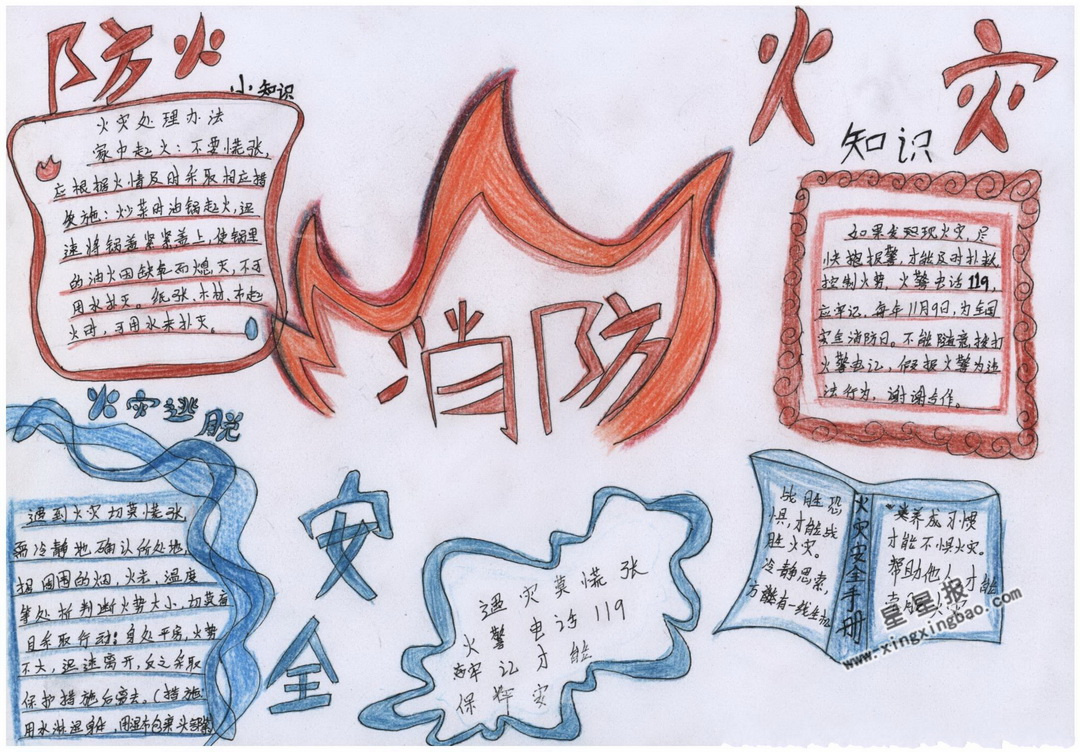 防火
小知识
火灾处理办法
家中起火：不要慌张，
应根据火情及时采取相应措
施：炒菜时油锅起火，迅
速将锅盖紧紧盖上，使锅里
的油火因缺氧而熄灭，不可
用水扑灭。纸张、木材、布起
火时，可用水来扑灭。
消防
火灾
知识
如果发现火灾，尽
快拨报警，才能及时扑救
控制火势，火警电话119，
应牢记，每年11月9日，为全国
安全消防日。不能随意拨打
火警电话，假报火警为违
法行为，谢谢合作。
火灾逃脱
遇到火灾切莫慌张，
需冷静地确认所处地，
周围的烟，火光，温度
等分析判断火势大小，切莫盲
目采取行动：身处平房，火势
不大，迅速离开，反之采取
保护措施后离去。（措施：
用水淋湿身体，用湿布包裹头部
安全
遇灾莫慌张
火警电话119
牢记才能
保平安
战胜恐
惧，才能战
胜火灾。
冷静思索，
方能有一线生机
火灾安全手册
养成习惯
才能不惧火灾。
帮助他人才能
星星报
www.xingxingbao.com